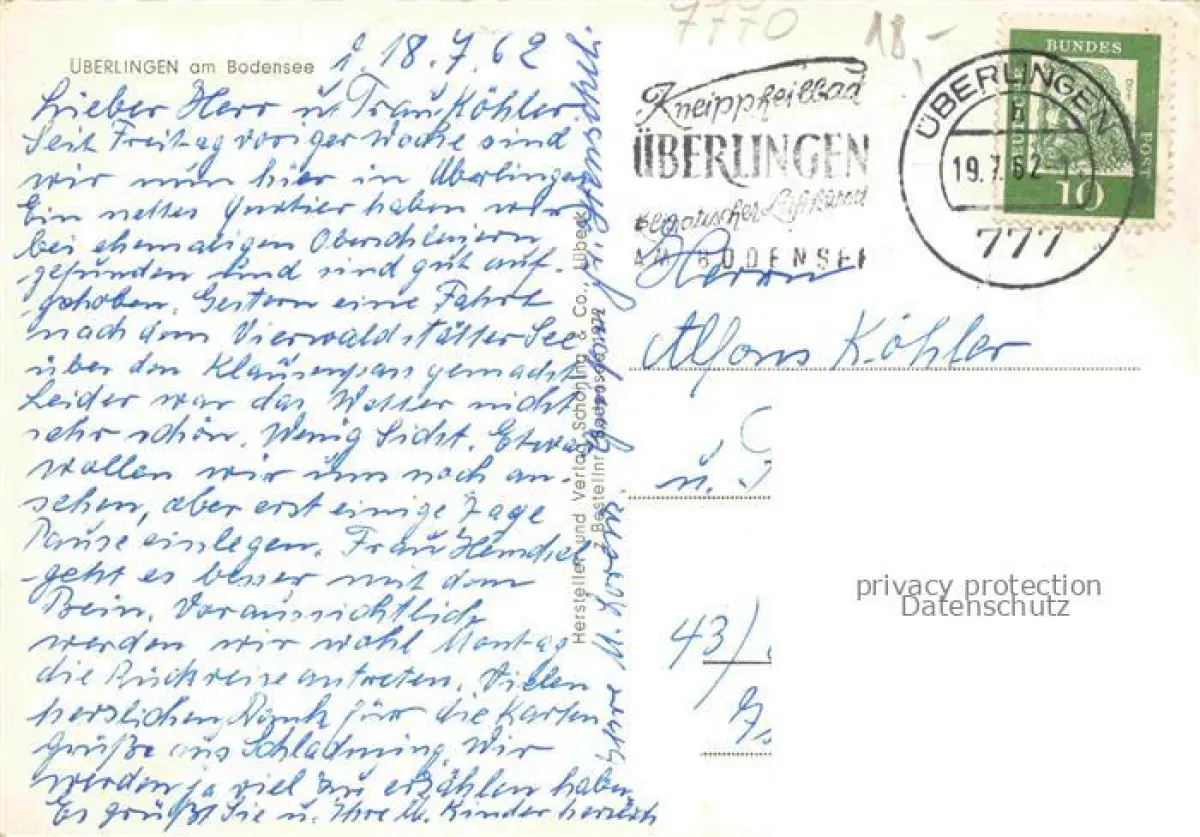 7770
18-
ÜBERLINGEN am Bodensee
18.7.62
Lieber Herr u. Frau Köhler
Seit Freitag voriger Woche sind
wir nun hier in Überlingen
Ein nettes Quartier haben wir
bei ehemaligen Oberschlesiern
gefunden und sind gut auf-
gehoben. Gestern eine Fahrt
nach dem Vierwaldstätter See
über den Klausenpass gemacht
Leider war das Wetter nicht
sehr schön. Wenig Sicht. Etwas
wollen wir uns noch an-
sehen, aber erst einige Tage
Pause einlegen. Frau
geht es besser mit dem
Bein. Voraussichtlich
werden wir wohl Montag
die Rückreise antreten. Vielen
herzlichen Dank für die Karten
Grüße aus Schladming. Wir
werden ja viel zu erzählen haben
Es grüßt Sie u. Ihre lb. Kinder herzlich
Hersteller und Verlag Schöning & Co., Lübeck
Bestellnr.
Kneippheilbad
ÜBERLINGEN
AM BODENSEE
ÜBERLINGEN
19.7.62
777
BUNDES
POST
10
Herrn
Alfons Köhler
u.
43/
privacy protection
Datenschutz